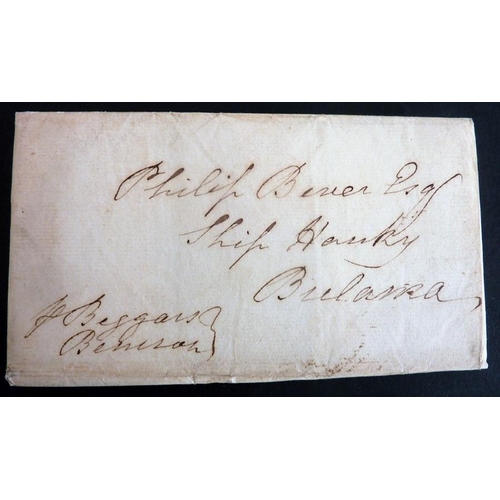 Philip Bever Esq
Ship Hanky
Bulama
p Beggars
Benison